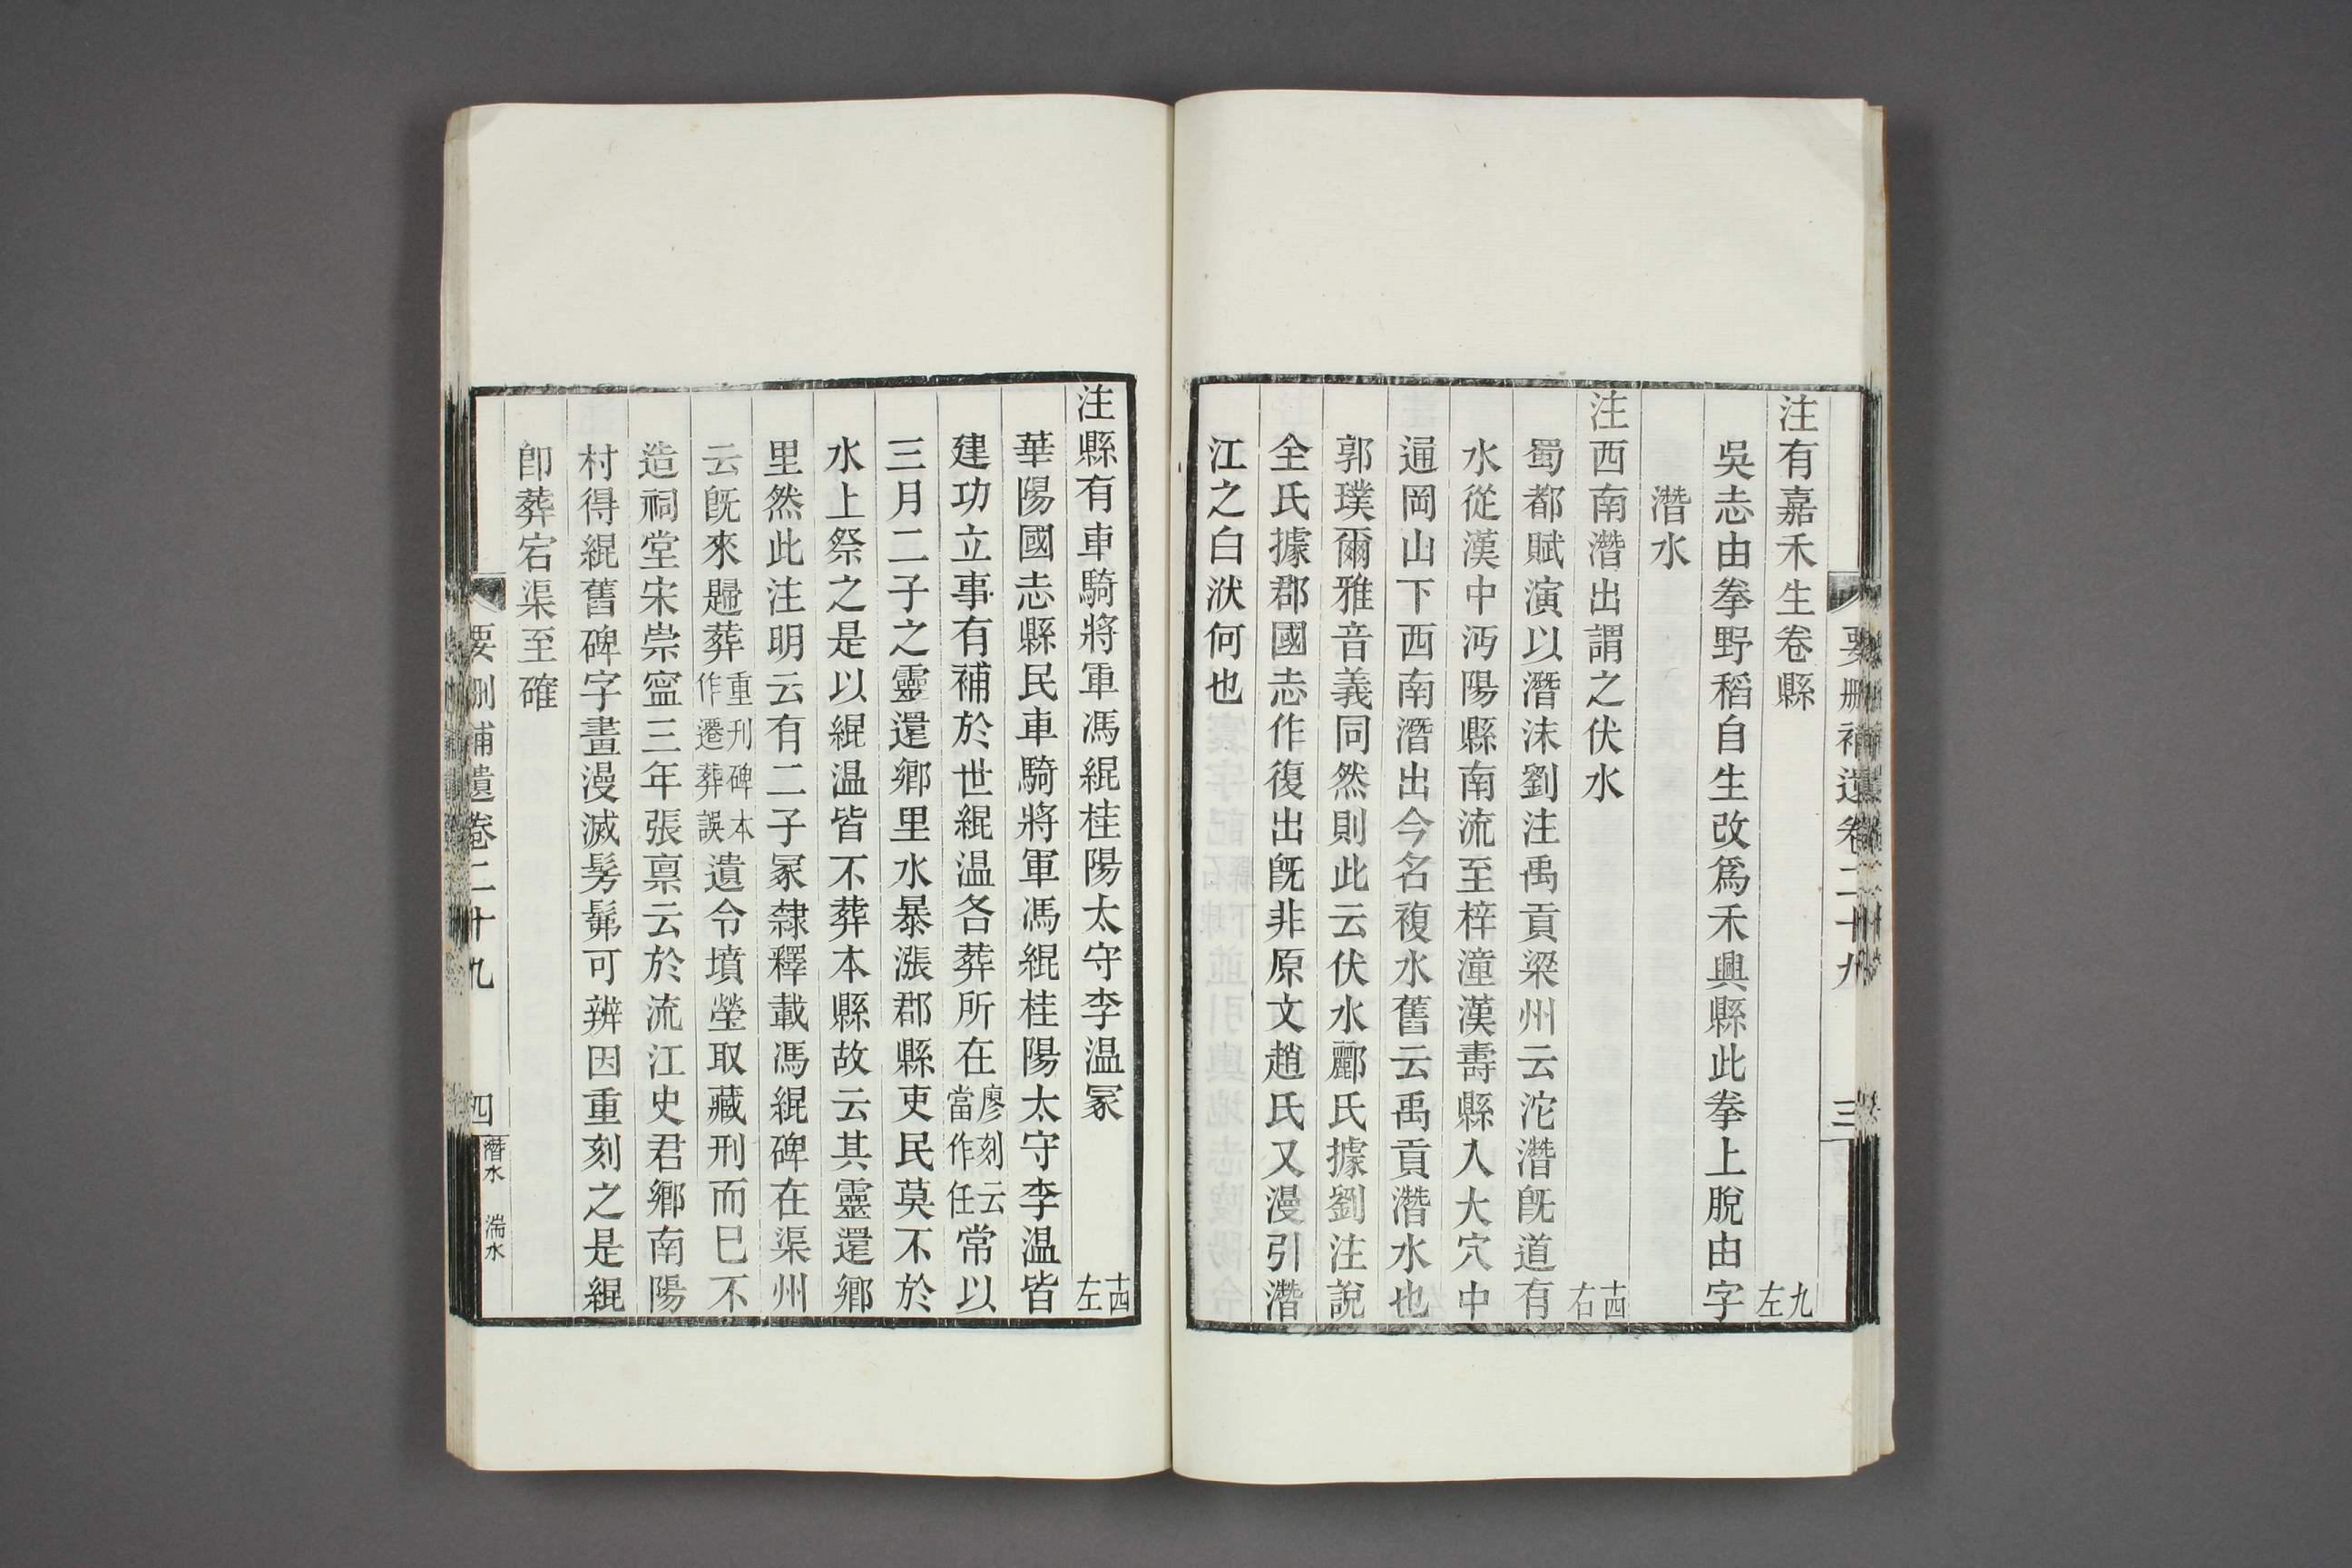 要刪補遺卷二十九
三
注有嘉禾生卷縣
九左
吳志由拳野稻自生改爲禾興縣此拳上脫由字
潛水
注西南潛出謂之伏水
十四右
蜀都賦演以潛沬劉注禹貢梁州云沱潛旣道有
水從漢中沔陽縣南流至梓潼漢壽縣入大穴中
通岡山下西南潛出今名複水舊云禹貢潛水也
郭璞爾雅音義同然則此云伏水酈氏據劉注說
全氏據郡國志作復出旣非原文趙氏又漫引潛
江之白洑何也
注縣有車騎將軍馮緄桂陽太守李温冢
十四左
華陽國志縣民車騎將軍馮緄桂陽太守李温皆
建功立事有補於世緄温各葬所在廖刻云當作任常以
三月二子之靈還鄉里水暴漲郡縣吏民莫不於
水上祭之是以緄温皆不葬本縣故云其靈還鄉
里然此注明云有二子冢隸釋載馮緄碑在渠州
云旣來歸葬重刊碑本作遷葬誤遺令墳塋取藏刑而巳不
造祠堂宋崇寍三年張稟云於流江史君鄉南陽
村得緄舊碑字畫漫滅髣髴可辨因重刻之是緄
卽葬宕渠至確
要刪補遺卷二十九
四
潛水 湍水